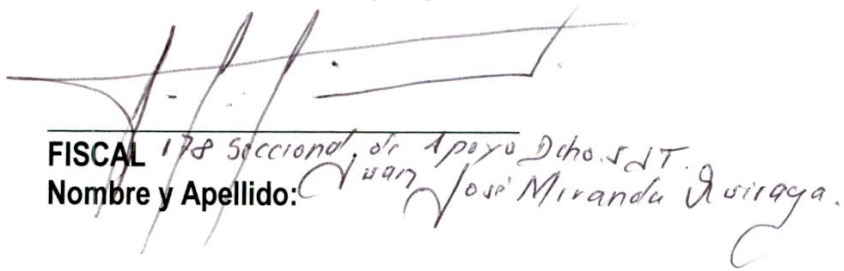 FISCAL 178 Seccional de Apoyo Dcho.
Nombre y Apellido: Juan José Miranda Quiroga.